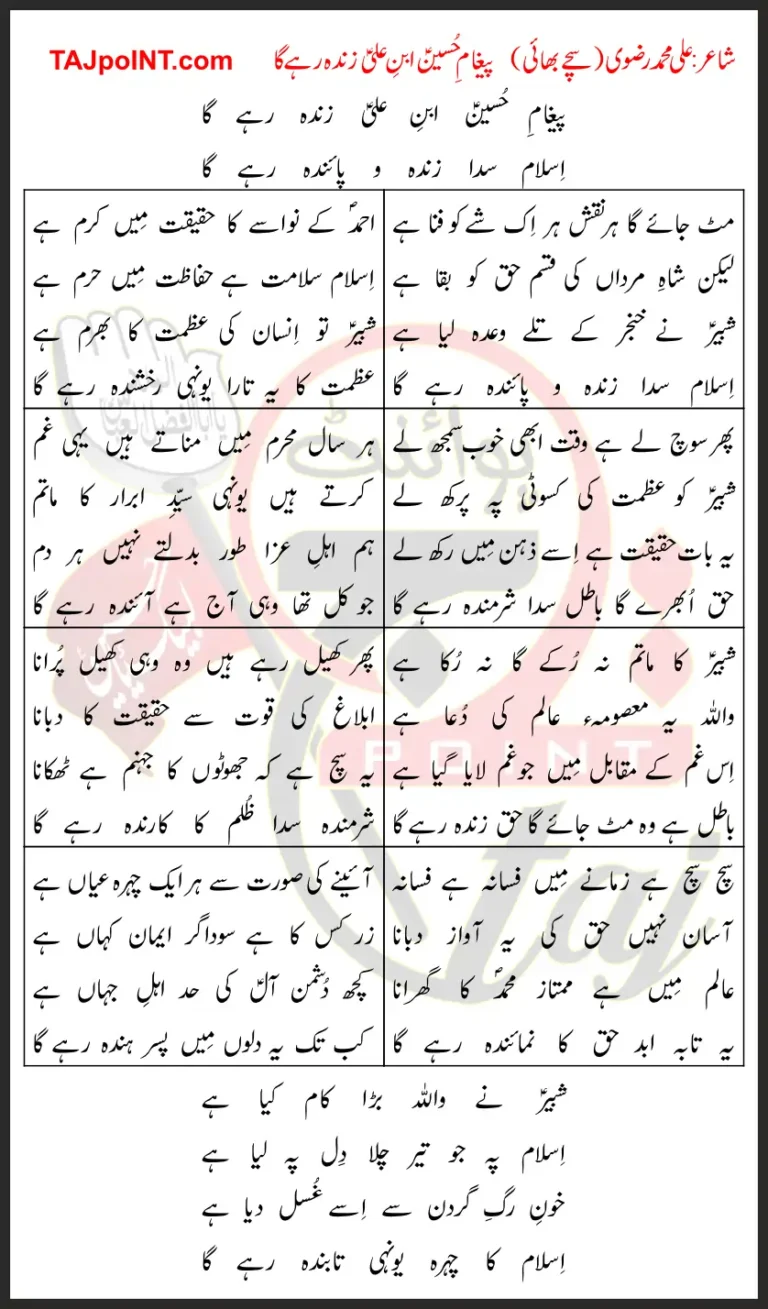 شاعر: علی محمد رضوی (سچے بھائی) پیغامِ حُسینؑ ابنِ علیؑ زندہ رہے گا TAJpoINT.com
پیغامِ حُسینؑ ابنِ علیؑ زندہ رہے گا
اِسلام سدا زندہ و پائندہ رہے گا
مٹ جائے گا ہر نقش ہر اِک شے کو فنا ہے
لیکن شاہِ مرداں کی قسم حق کو بقا ہے
شبیرؑ نے خنجر کے تلے وعدہ لیا ہے
اِسلام سدا زندہ و پائندہ رہے گا
احمدؐ کے نواسے کا حقیقت مِیں کرم ہے
اِسلام سلامت ہے حفاظت مِیں حرم ہے
شبیرؑ تو اِنسان کی عظمت کا بھرم ہے
عظمت کا یہ تارا یونہی رخشندہ رہے گا
پھر سوچ لے ہے وقت ابھی خوب سمجھ لے
شبیرؑ کو عظمت کی کسوٹی پہ پرکھ لے
یہ بات حقیقت ہے اِسے ذہن مِیں رکھ لے
حق اُبھرے گا باطل سدا شرمندہ رہے گا
ہر سال محرم مِیں مناتے ہیں یہی غم
کرتے ہیں یونہی سیّدِ ابرار کا ماتم
ہم اہلِ عزا طور بدلتے نہیں ہر دم
جو کل تھا وہی آج ہے آئندہ رہے گا
شبیرؑ کا ماتم نہ رُکے گا نہ رُکا ہے
واللہ یہ معصومہء عالم کی دُعا ہے
اِس غم کے مقابل مِیں جو غم لایا گیا ہے
باطل ہے وہ مٹ جائے گا حق زندہ رہے گا
پھر کھیل رہے ہیں وہ وہی کھیل پُرانا
ابلاغ کی قوت سے حقیقت کا دبانا
یہ سچ ہے کہ جھوٹوں کا جہنم ہے ٹھکانا
شرمندہ سدا ظُلم کا کارندہ رہے گا
سچ سچ ہے زمانے مِیں فسانہ ہے فسانہ
آسان نہیں حق کی یہ آواز دبانا
عالم مِیں ہے ممتاز محمدؐ کا گھرانا
یہ تابہ ابد حق کا نمائندہ رہے گا
آئینے کی صورت سے ہر ایک چہرہ عیاں ہے
زر کس کا ہے سوداگر ایمان کہاں ہے
کچھ دُشمن آلؑ کی حد اہلِ جہاں ہے
کب تک یہ دلوں مِیں پسر ہندہ رہے گا
شبیرؑ نے واللہ بڑا کام کیا ہے
اِسلام پہ جو تیر چلا دِل پہ لیا ہے
خونِ رگِ گردن سے اِسے غُسل دیا ہے
اِسلام کا چہرہ یونہی تابندہ رہے گا
پوائنٹ
POINT
taj